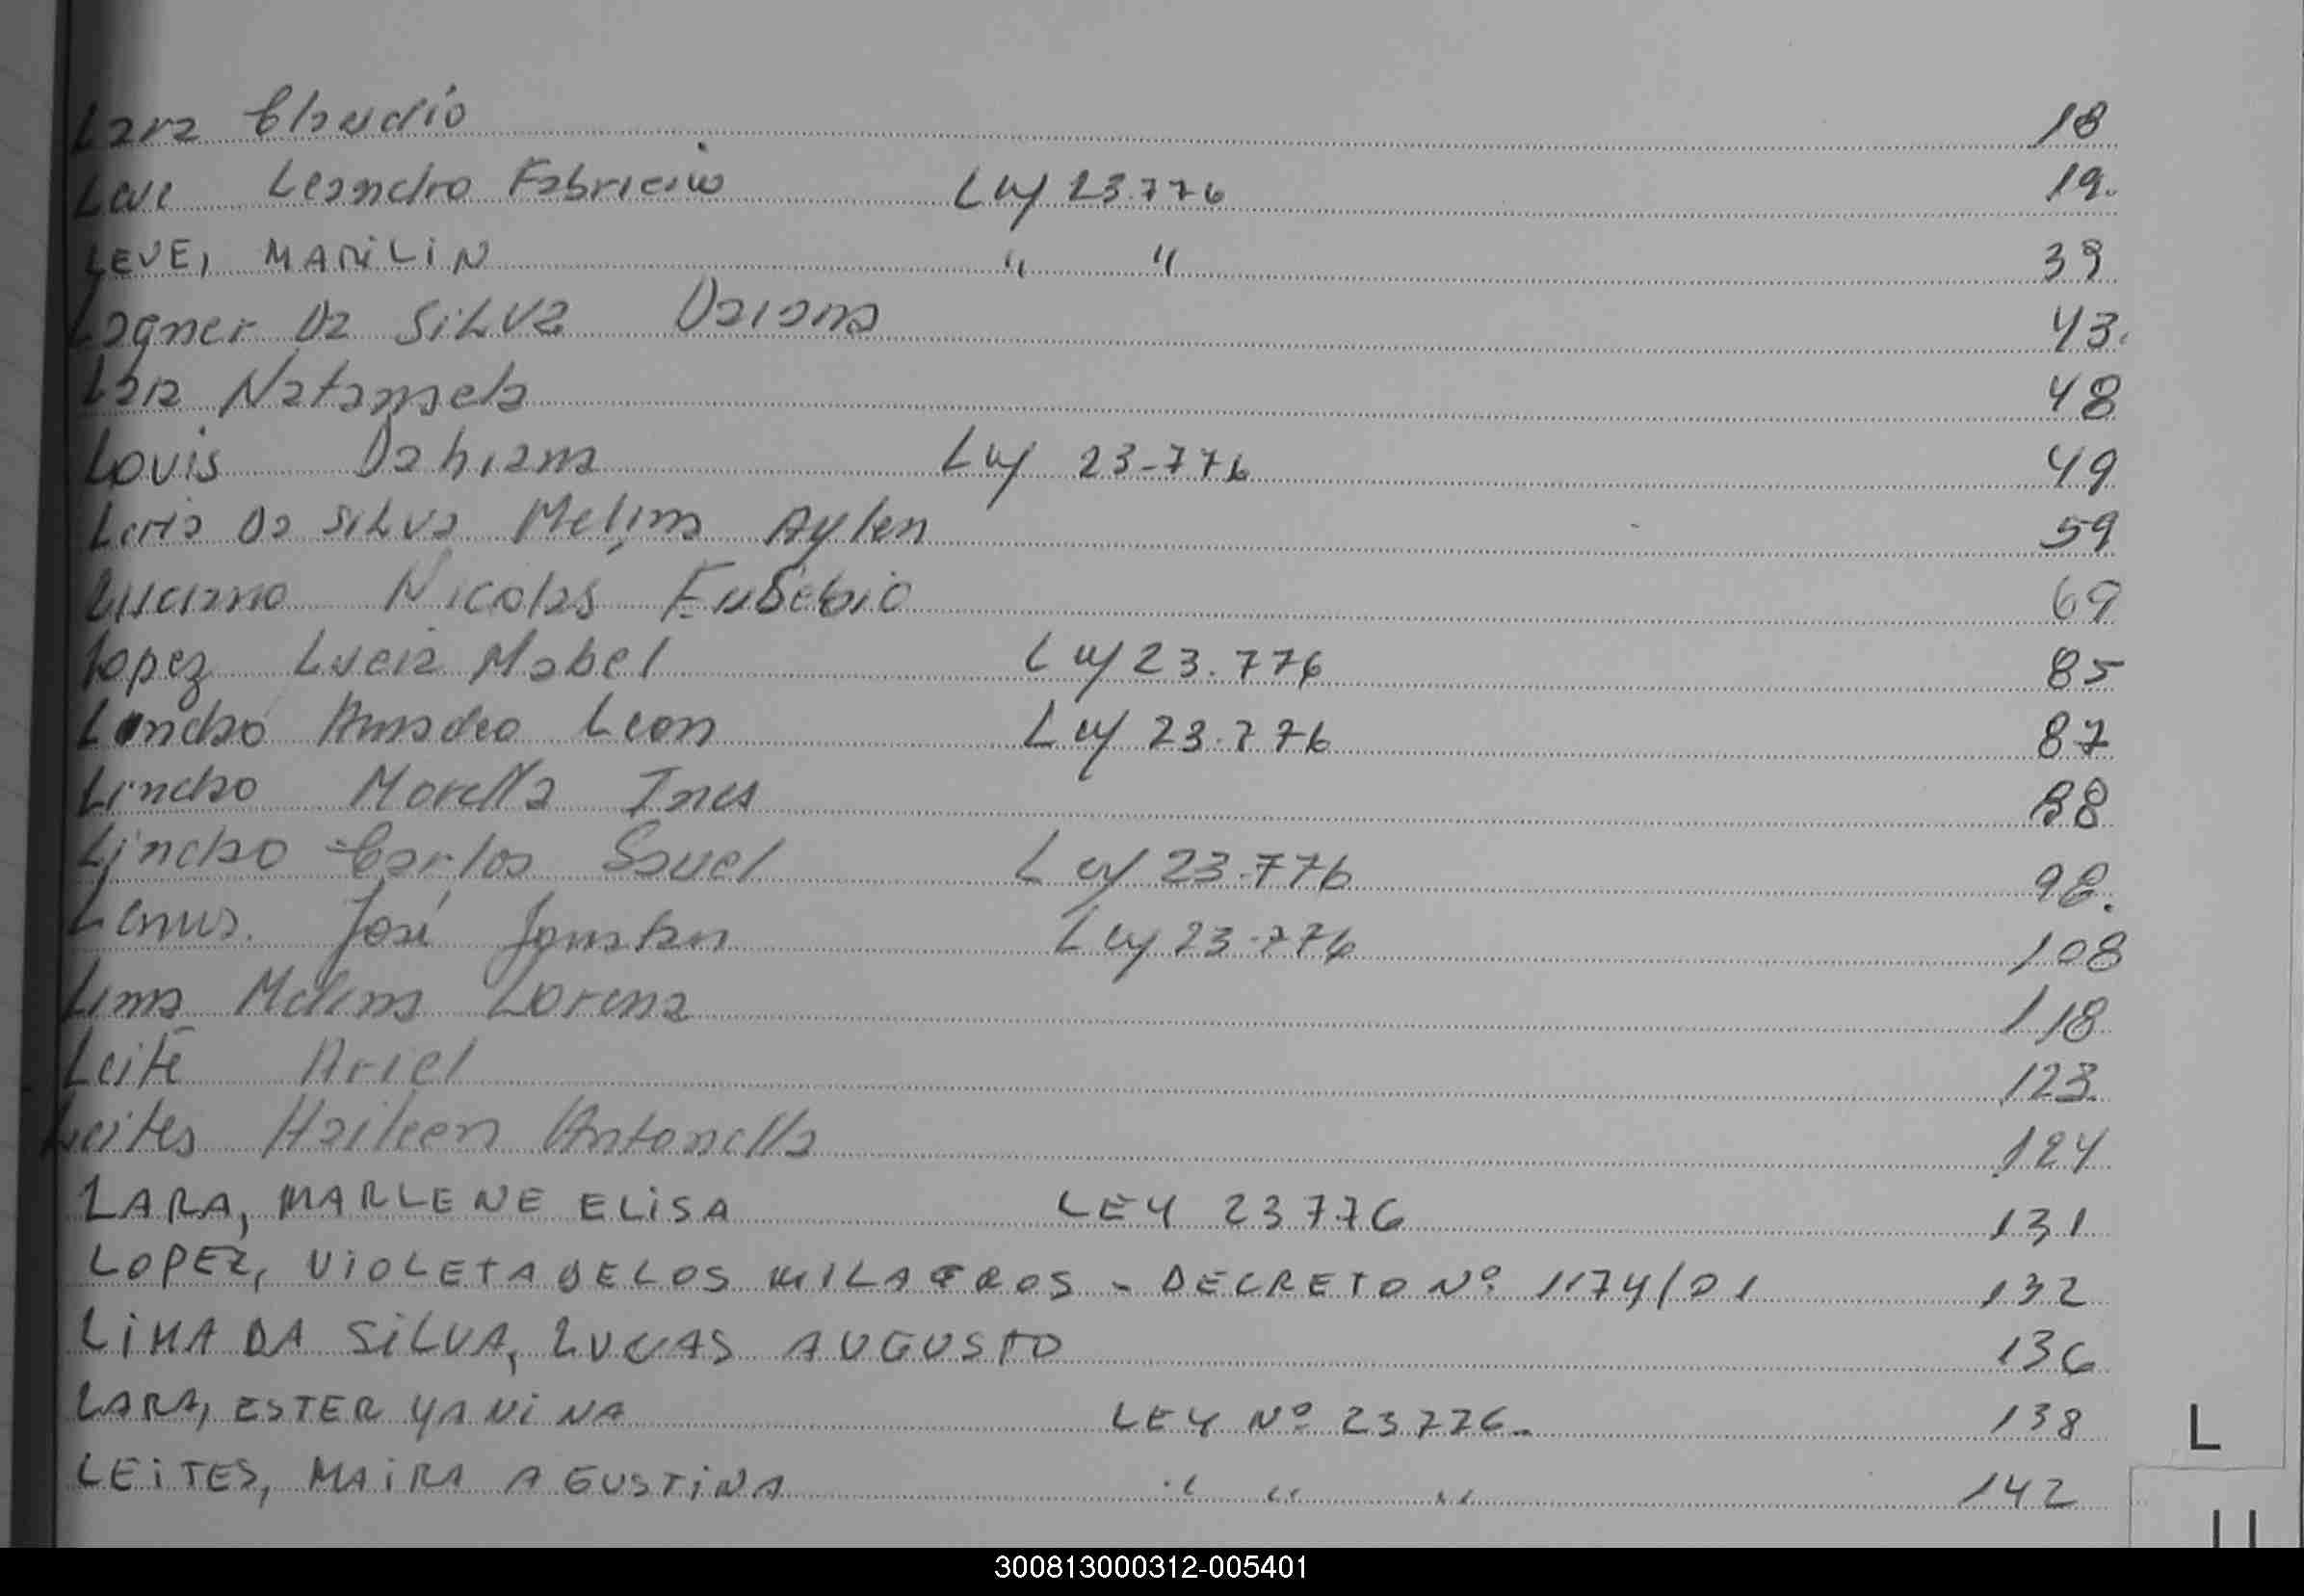 Lara Claudio 18
Leve Leandro Fabricio Ley 23.776 19.
LEVE, MARILIN " " 39
Lagner Da SILVa Daiana 43.
Lara Natanaela 48
Lovis Dahiana Ley 23-776 49
Da SILVa Melina Aylen 59
Luciano Nicolas Eusebio 69
Lopez Lucia Mabel Ley 23.776 85
Amadeo Leon Ley 23.776 87
Morella Ines 88
Carlos Ley 23.776 98.
José Ley 23.776 108
Lima Melina Lorena 118
Leite Ariel 123.
Leites Haileen Antonella 124
LARA, MARLENE ELISA LEY 23776 131
LOPEZ, VIOLETA DE LOS MILAGROS - DECRETO Nº 1174/01 132
LIMA DA SILVA, LUCAS AUGUSTO 136
LARA, ESTER YANINA LEY Nº 23776. 138
LEITES, MAIRA AGUSTINA " " " 142
L
300813000312-005401